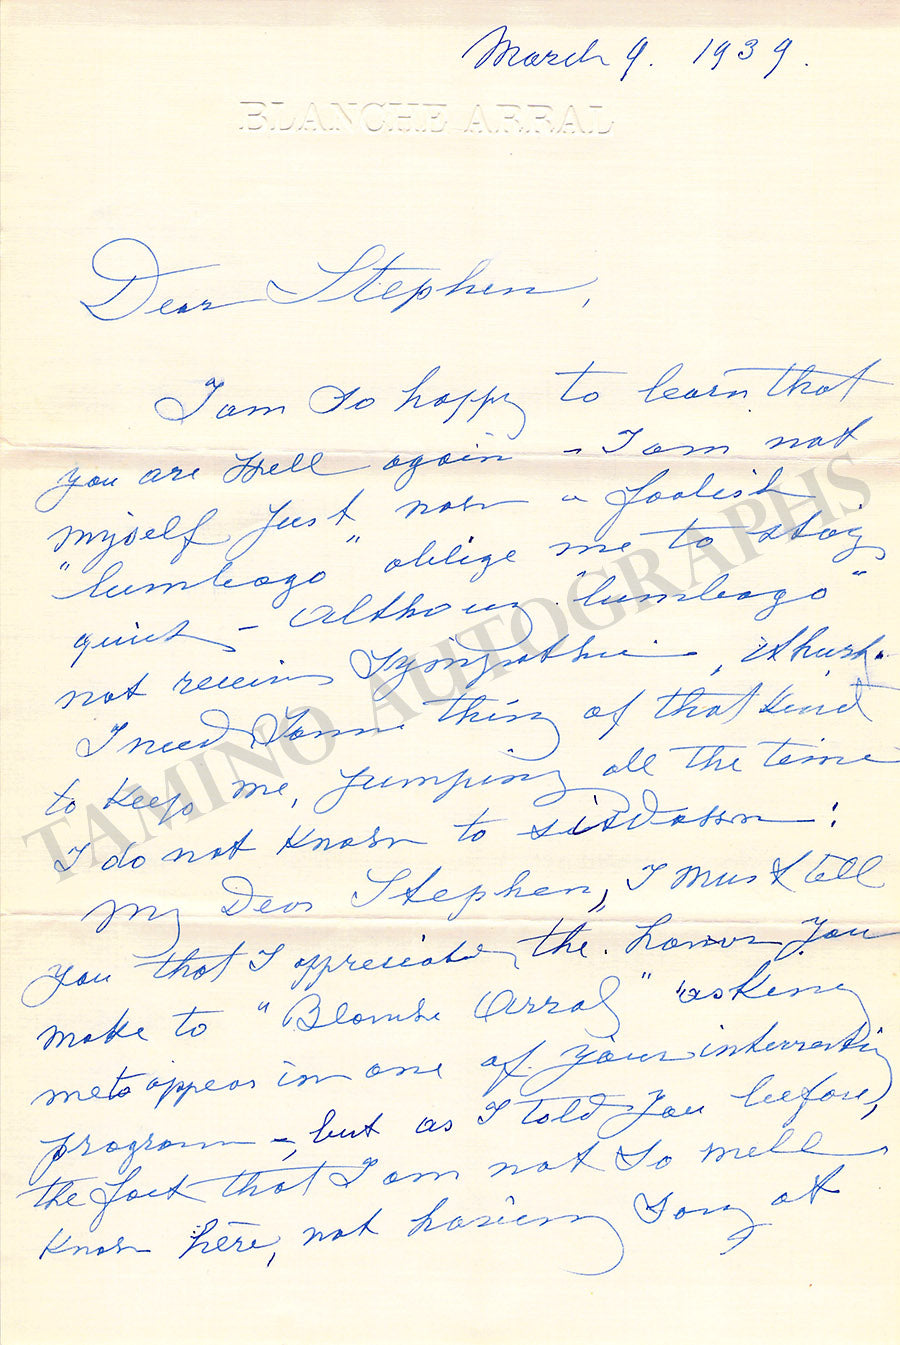 March 9. 1939.
BLANCHE ARRAL
Dear Stephen,
I am so happy to learn that
you are well again - I am not
myself just now - a foolish
"lumbago" oblige me to stay
quiet - Althoug "lumbago"
not receive sympathie,
I need some thing of that kind
to keep me, jumping all the time
I do not know to sitdown!
My Dear Stephen, I must tell
you that I appreciate the honor you
make to "Blanche Arral" asking
me to appear in one of your interresting
program - but as I told you before,
the fact that I am not so well
know here, not having song at
TAMINO AUTOGRAPHS